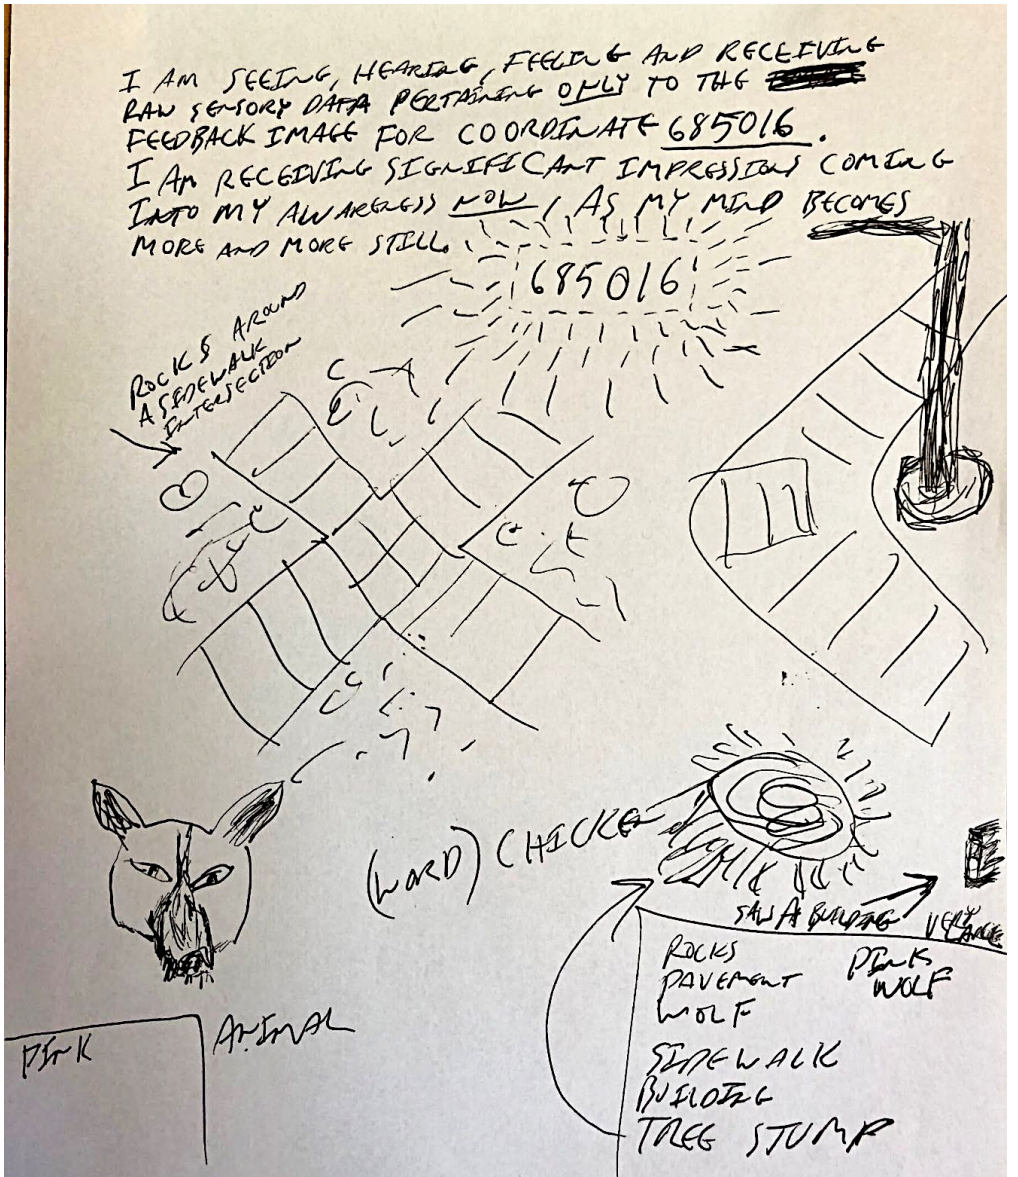 I AM SEEING, HEARING, FEELING AND RECEIVING
RAW SENSORY DATA PERTAINING ONLY TO THE
FEEDBACK IMAGE FOR COORDINATE 685016.
I AM RECEIVING SIGNIFICANT IMPRESSIONS COMING
INTO MY AWARENESS NOW, AS MY MIND BECOMES
MORE AND MORE STILL.
685016
ROCKS AROUND
A SIDEWALK
INTERSECTION
(WORD) CHICKEN
SAW A BUILDING
VERY
LARGE
ROCKS
PAVEMENT
WOLF
SIDEWALK
BUILDING
TREE STUMP
PINK
WOLF
PINK
ANIMAL